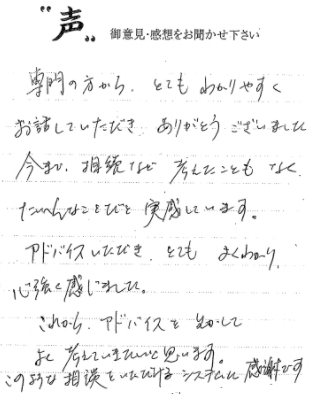 "声" 御意見・感想をお聞かせ下さい
専門の方から、とても わかりやすく
お話していただき ありがとう ございました
今まで、相続など 考えたことも なく、
たいへんなことだと 実感しています。
アドバイスいただき、とても よくわかり、
心強く感じました。
これから、アドバイスを 生かして
よく 考えていきたいと思います。
このような 相談を いただける システムに 感謝です